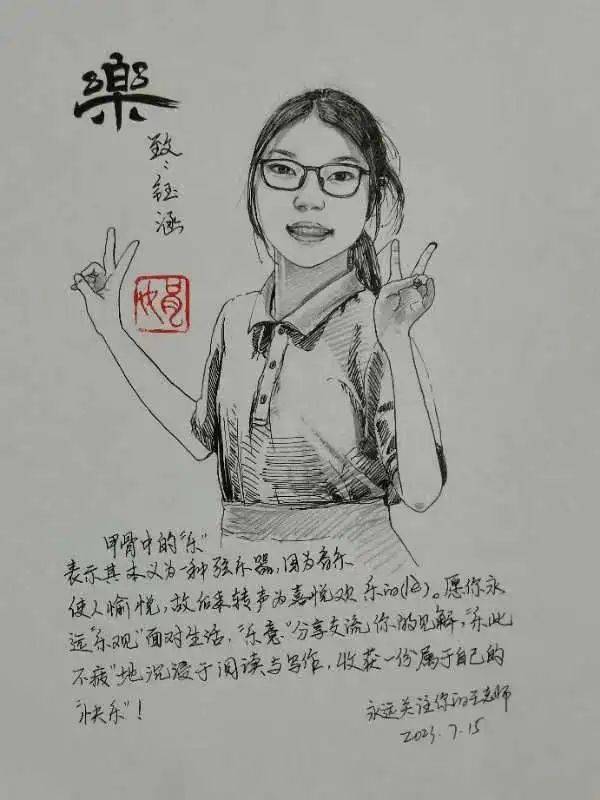 樂
致：钰涵
甲骨中的“乐”
表示其本义为一种弦乐器，因为音乐
使人愉悦，故后来转声为喜悦欢乐的(lè)。愿你永
远“乐观”面对生活，“乐意”分享交流你的见解，“乐此
不疲”地沉浸于阅读与写作，收获一份属于自己的
“快乐”！
永远关注你的王老师
2023.7.15